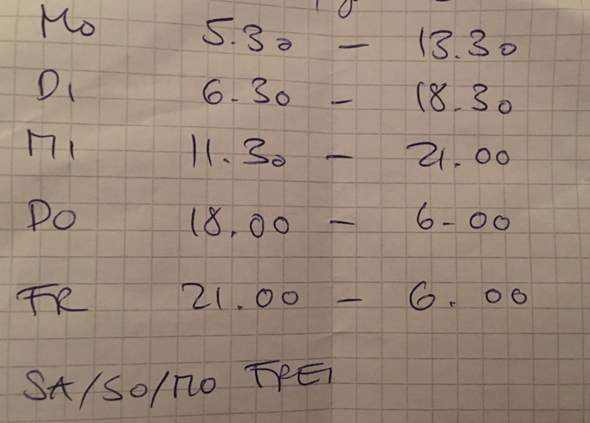 Mo 5.30 - 13.30
Di 6.30 - 18.30
Mi 11.30 - 21.00
DO 18.00 - 6.00
FR 21.00 - 6.00
SA/SO/MO FREI